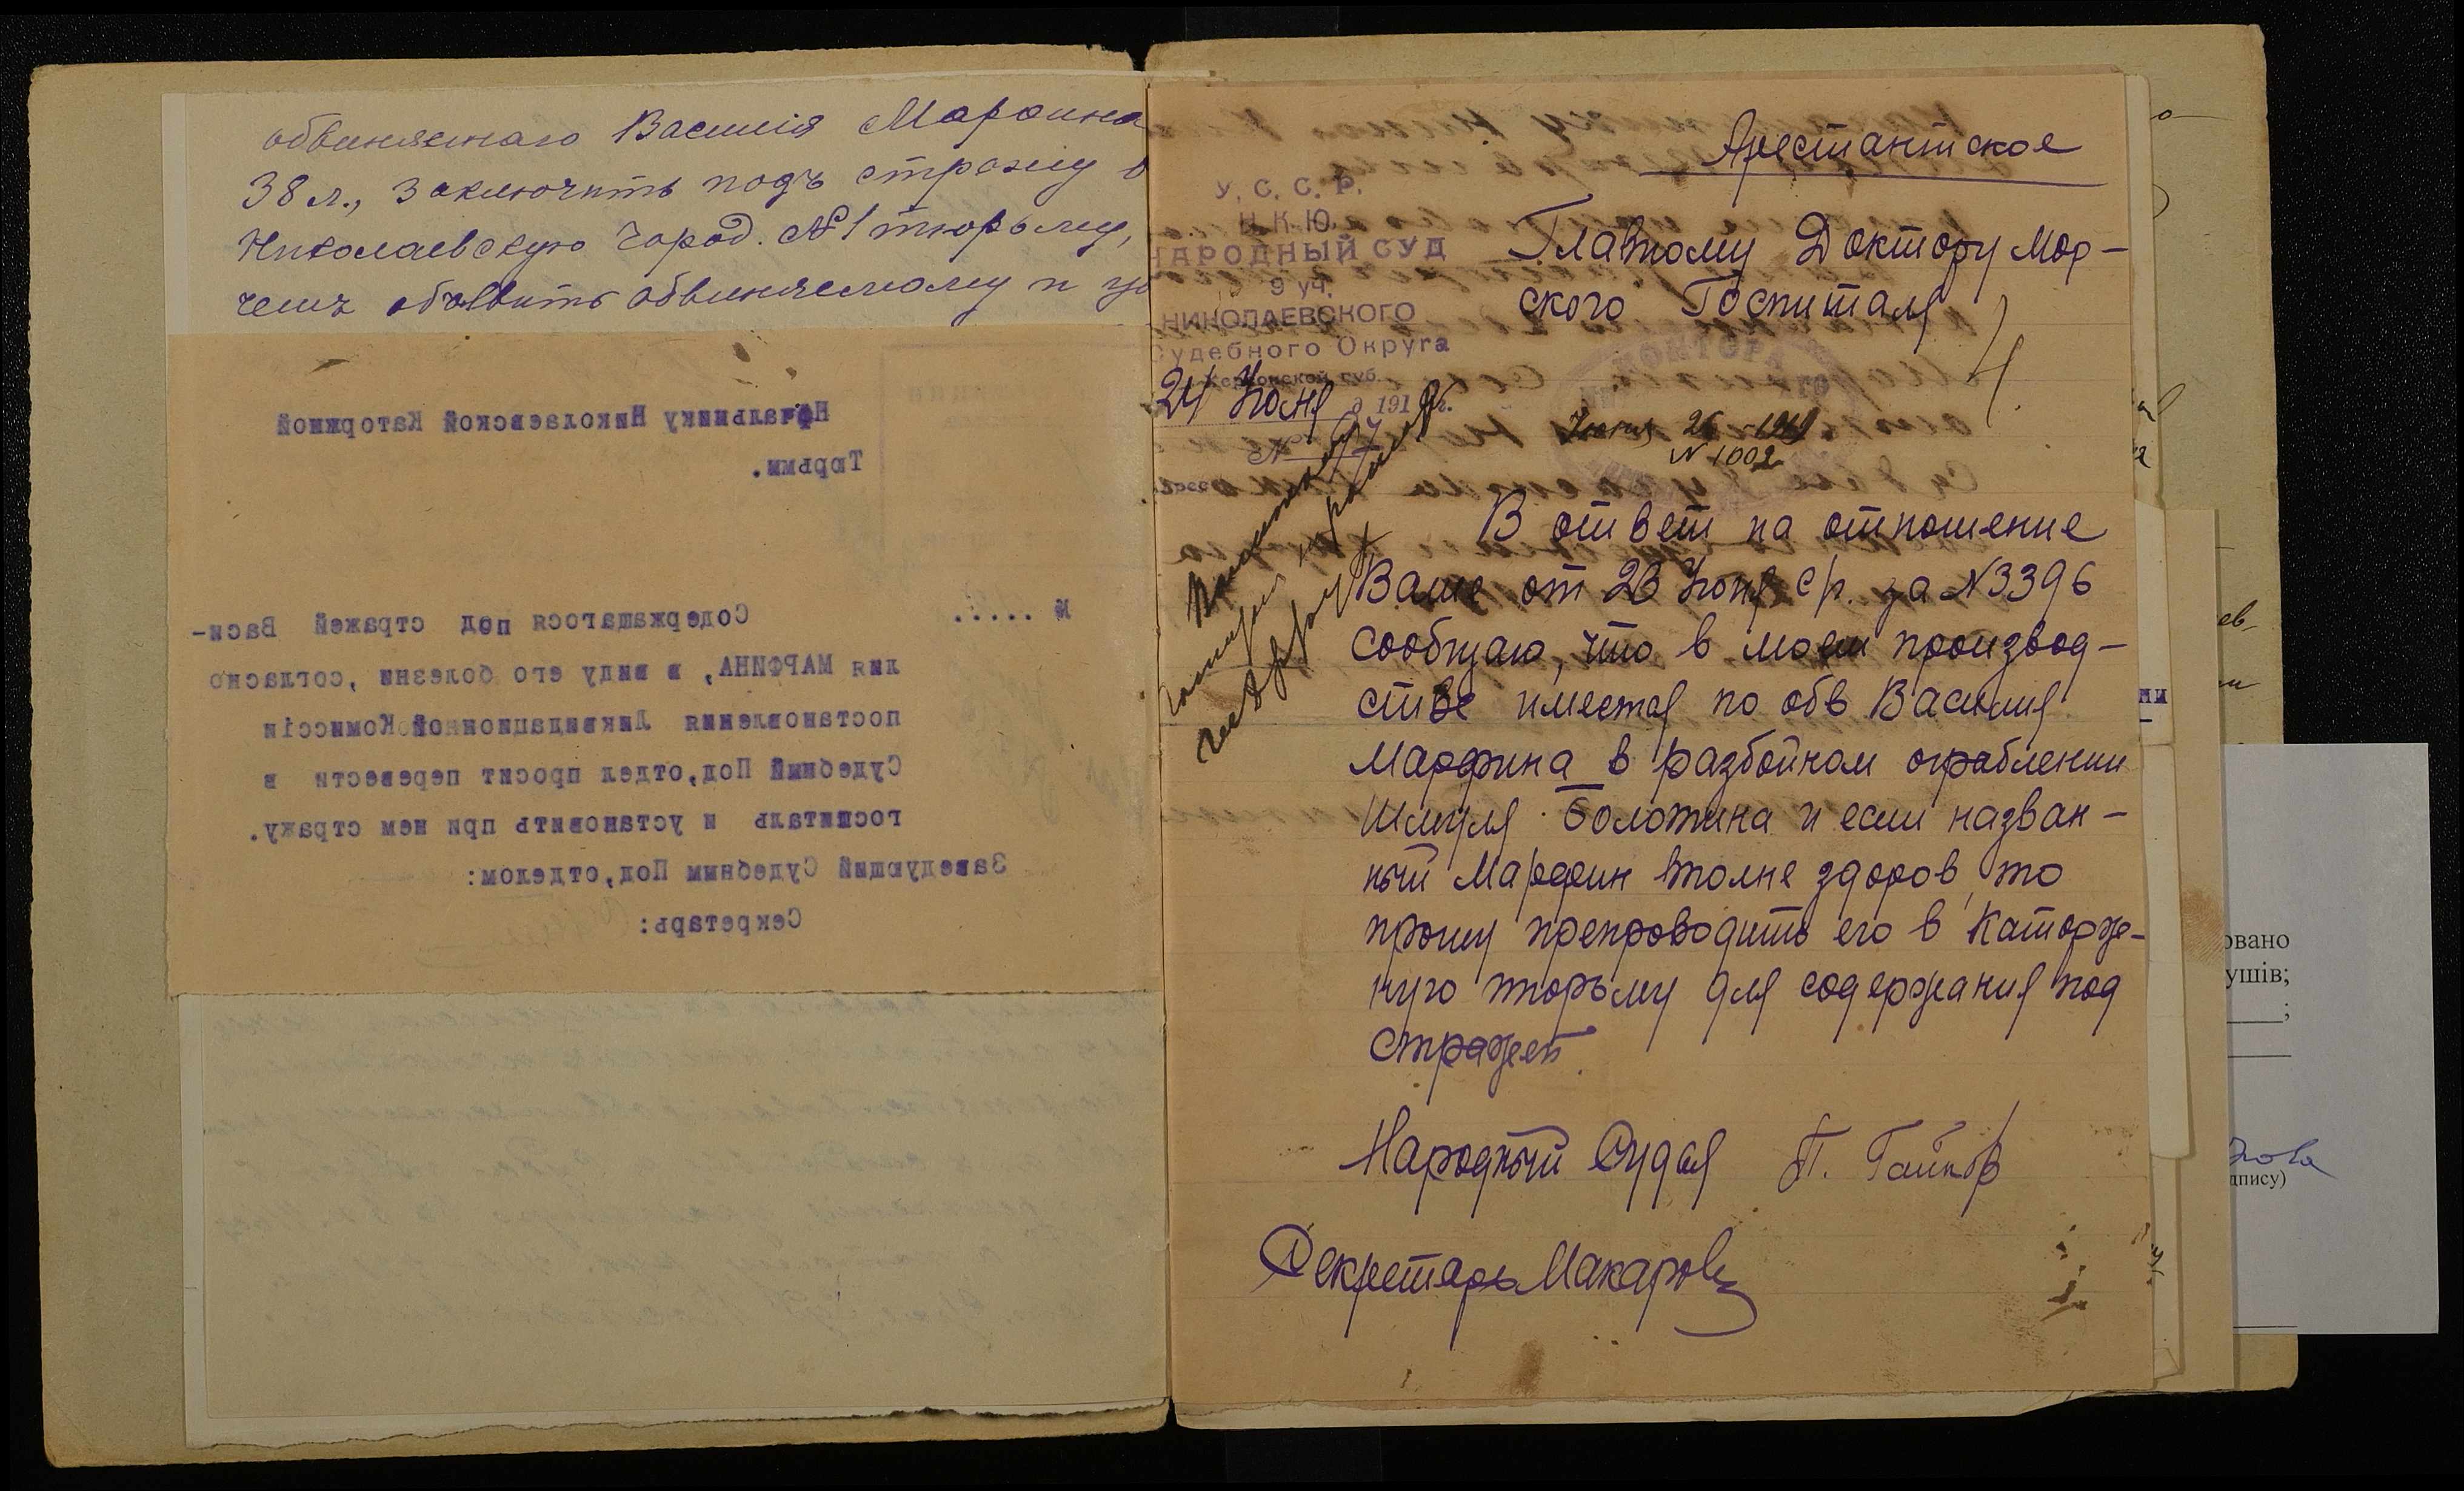 обвиняемаго Василія Марѳина
38 л., заключить подъ стражу в
Николаевскую город. №1 тюрьму,
чемъ объявить обвиняемому и
Начальнику Николаевской Каторжной
Тюрьмы.
№ .....
Содержащагося под стражей Васи-
лия МАРФИНА, в виду его болезни, согласно
постановления Ликвидационной Комиссіи
Судебный Под,отдел просит перевести в
госпиталь и установить при нем стражу.
Заведующий Судебным Под,отделом:
Секретарь:
Арестантское
У. С. С. Р.
Н. К. Ю.
НАРОДНЫЙ СУД
9 уч.
НИКОЛАЕВСКОГО
Судебного Округа
Херсонской губ.
24 Июня 1919 г.
№
Главному Доктору Мор-
ского Госпиталя
КОНТОРА
Июня 26 1919
N 1002
В ответ на отношение
Ваше от 23 Июня с/г. за N 3396
сообщаю, что в моем производ-
стве имеется по обв Василия
Марфина в разбойном ограблении
Шмуля Болотина и если назван-
ный Марфин вполне здоров, то
прошу препроводить его в Каторж-
ную тюрьму для содержания под
стражей.
Народный Судья П.
Секретарь Макаров
овано
ушів;
дпису)